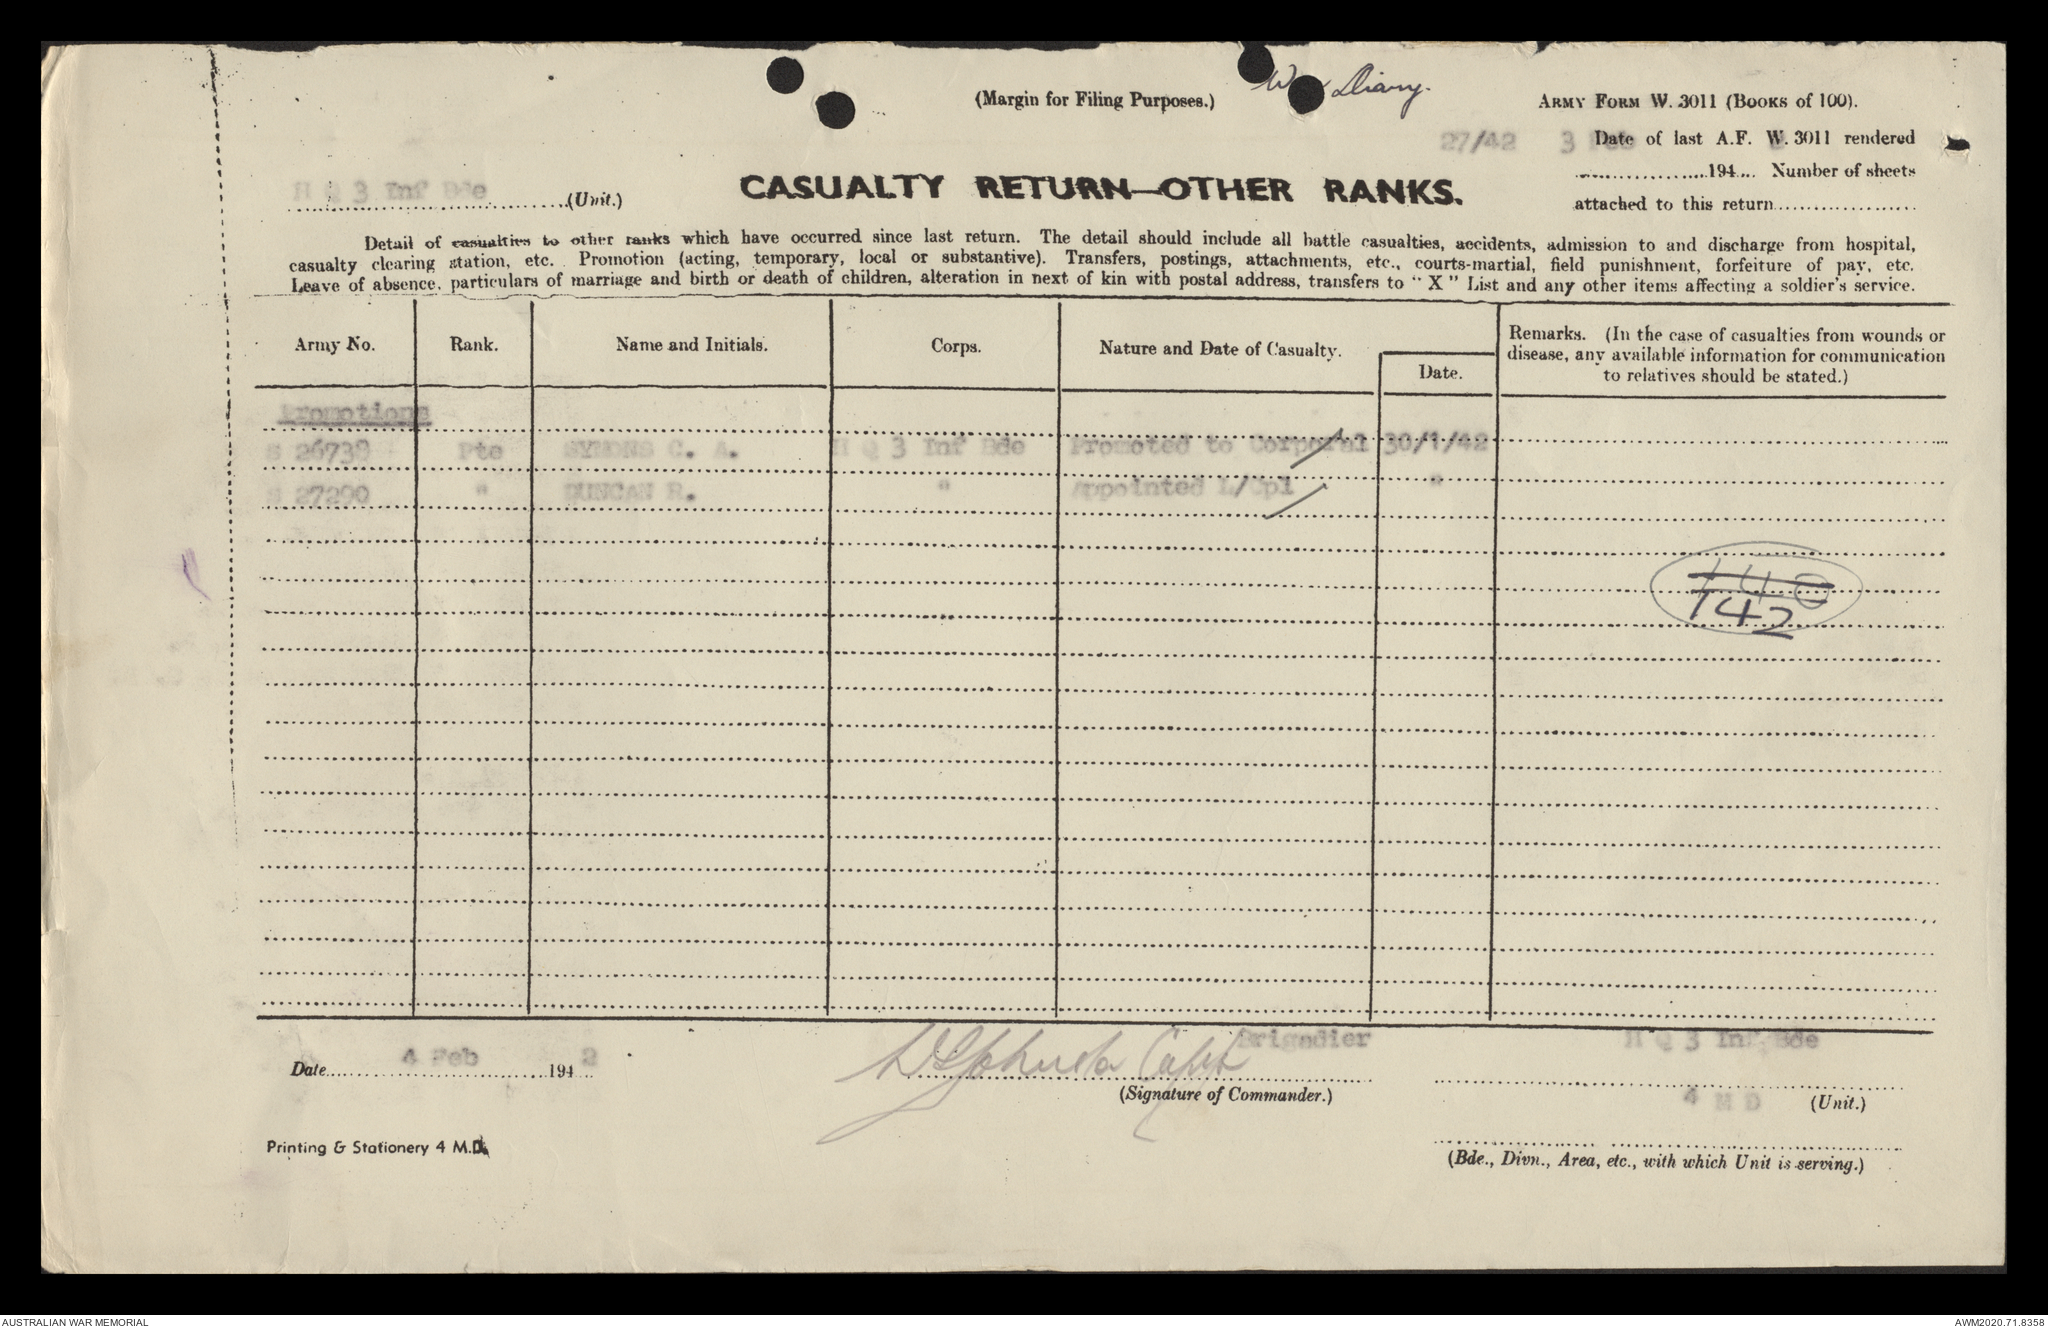 War Diary.
(Margin for Filing Purposes.)
ARMY FORM W. 3011 (BOOKS of 100).
27/42 3 Feb
Date of last A.F. W. 3011 rendered
H Q 3 Inf Bde
..............(Unit.)
CASUALTY RETURN—OTHER RANKS.
..............194.... Number of sheets
attached to this return..............
Detail of casualties to other ranks which have occurred since last return. The detail should include all battle casualties, accidents, admission to and discharge from hospital,
casualty clearing station, etc. Promotion (acting, temporary, local or substantive). Transfers, postings, attachments, etc., courts-martial, field punishment, forfeiture of pay, etc.
Leave of absence, particulars of marriage and birth or death of children, alteration in next of kin with postal address, transfers to "X" List and any other items affecting a soldier's service.
Army No. Rank. Name and Initials. Corps. Nature and Date of Casualty. Date.
Remarks. (In the case of casualties from wounds or
disease, any available information for communication
to relatives should be stated.)
Promotions
S 26738 Pte SYMONS C. A. H Q 3 Inf Bde Promoted to Corporal 30/1/42
S 27290 " DUNCAN R. " Appointed L/Cpl "
140
142
Brigadier
H Q 3 Inf Bde
Date 4 Feb 1942
Capt
(Signature of Commander.)
4 M D (Unit.)
Printing & Stationery 4 M.D.
(Bde., Divn., Area, etc., with which Unit is serving.)
AUSTRALIAN WAR MEMORIAL
AWM2020.71.8358